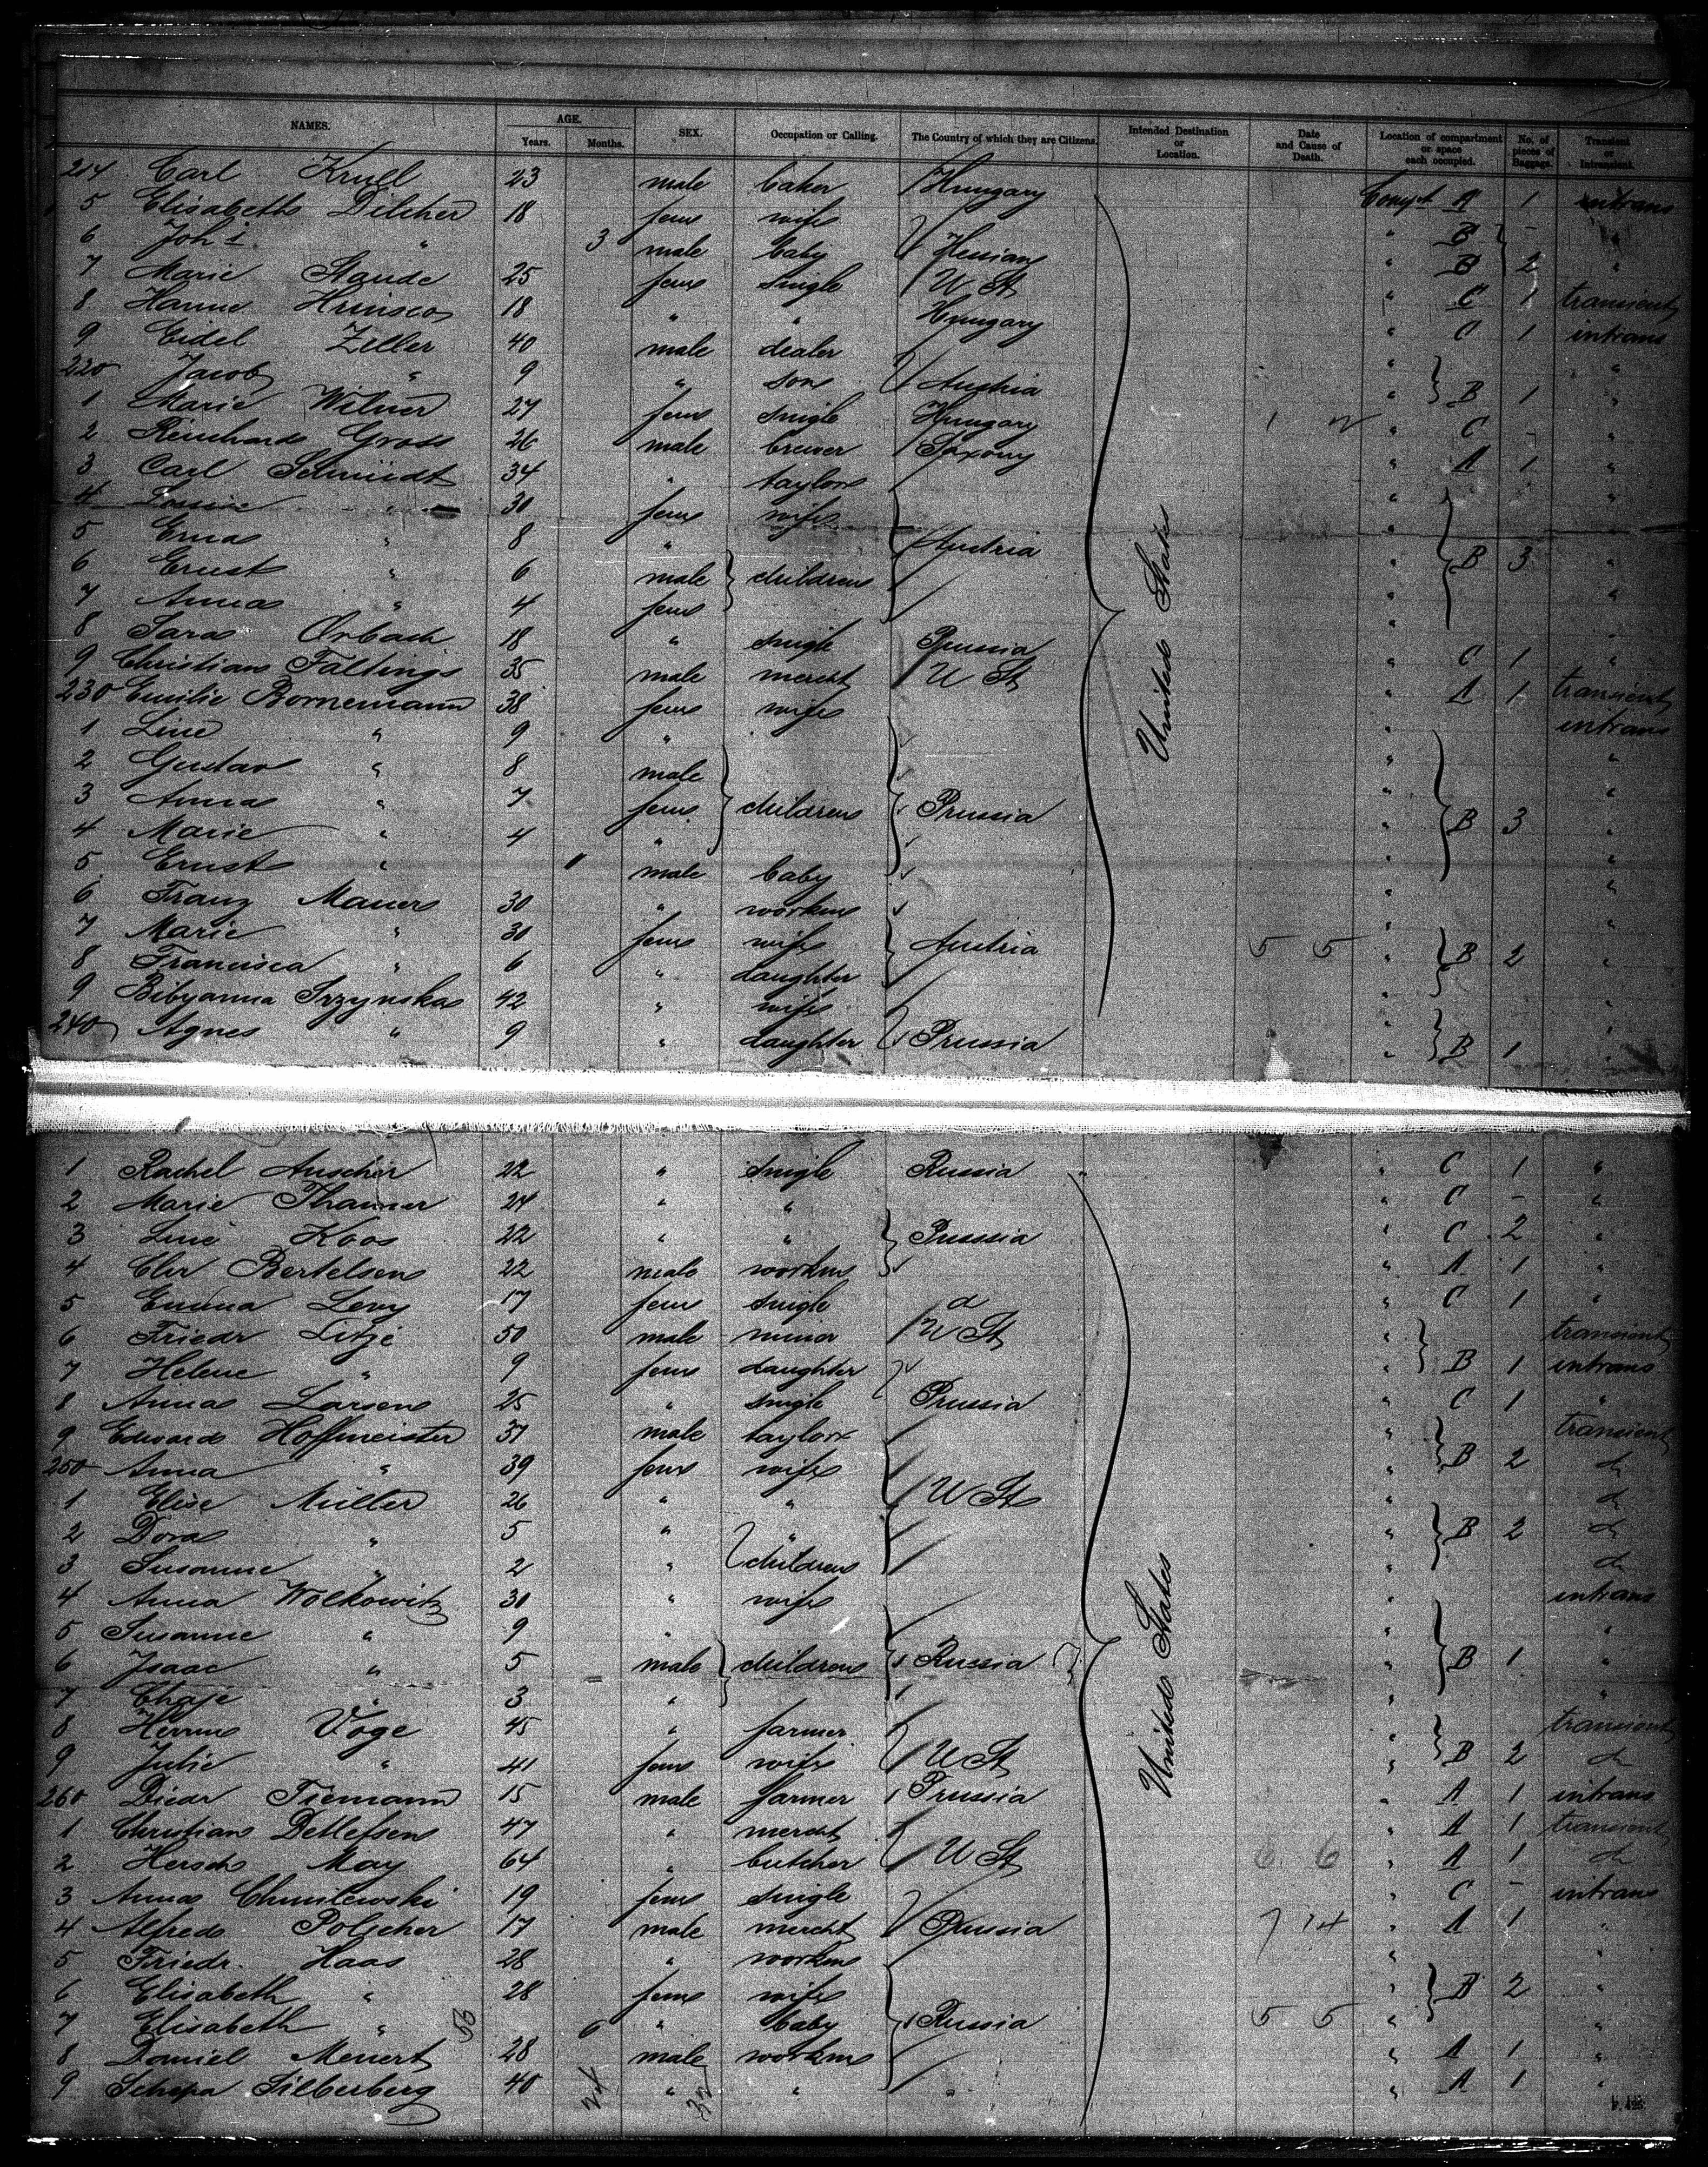 NAMES. AGE. SEX. Occupation or Calling. The Country of which they are Citizens. Intended Destination or Location. Date and Cause of Death. Location of compartment or space each occupied. No. of pieces of Baggage. Transient or Intransient.
Years. Months.
214 Carl Krull 23 male baker Hungary Compt A 1 intrans
5 Elisabeth Dilcher 18 fem wife " B -
6 Joh's " 3 male baby Hessian " B 2 "
7 Marie Staude 25 fem single U St " C 1 transient
8 Hanne Hrinsco 18 " " Hungary " C 1 intrans
9 Eidel Zeller 40 male dealer " "
220 Jacob " 9 " son Austria " B 1 "
1 Marie Wilner 27 fem single Hungary " C - "
2 Reinhard Gross 26 male brewer Saxony " A 1 "
3 Carl Schmidt 34 " taylor " "
4 " 30 fem wife "
5 Erna " 8 " Austria " B 3 "
6 Ernst " 6 male children " "
7 Anna " 4 fem "
8 Sara Orbach 18 " single Russia " C 1 "
9 Christian Faltings 35 male mercht U St " A 1 transient
230 Emilie Bornemann 38 fem wife intrans
1 Line " 9 " "
2 Gustav " 8 male " "
3 Anna " 7 fem children Prussia " B 3 "
4 Marie " 4 " "
5 Ernst " 11 male baby " "
6 Franz Mauer 30 " workm " "
7 Marie " 30 fem wife Austria 5 5 " B 2 "
8 Francisca " 6 " daughter "
9 Bibyanna Srzynska 42 " wife " "
240 Agnes " 9 " daughter Prussia " B 1 "
United States
1 Rachel Auscher 22 " single Russia " " C 1 "
2 Marie Thamer 24 " " " C - "
3 Line Koos 22 " " Prussia " C 2 "
4 Chr Bertelsen 22 male workm " A 1 "
5 Emma Levy 17 fem single d " C 1 "
6 Friedr Litje 50 male minor U St " transient
7 Helene " 9 fem daughter " B 1 intrans
8 Anna Larsen 25 " single Prussia " C 1 "
9 Edward Hoffmeister 37 male taylor " transient
250 Anna " 39 fem wife " B 2 do
1 Elise Müller 26 " " U St " do
2 Dora " 5 " " " B 2 do
3 Susanne " 2 " children " do
4 Anna Wolkowitz 30 " wife " intrans
5 Susanne " 9 " " "
6 Isaac " 5 male children Russia " B 1 "
7 Chaje " 3 " " "
8 Herm Voge 45 " farmer " transient
9 Julie " 41 fem wife U St " B 2 do
260 Diedr Tiemann 15 male farmer Prussia " A 1 intrans
1 Christian Detlefsen 47 " mercht " A 1 transient
2 Hersch May 64 " butcher U St 6 6 " A 1 do
3 Anna Chmilewski 19 fem single " C - intrans
4 Alfred Polscher 17 male mercht Prussia 7 14 " A 1 "
5 Friedr. Haas 28 " workm " "
6 Elisabeth " 28 fem wife " B 2 "
7 Elisabeth " 6 " baby Russia 5 5 " "
8 Daniel Menert 28 male workm " A 1 "
9 Schepa Silberberg 40 " " " " A 1 "
United States